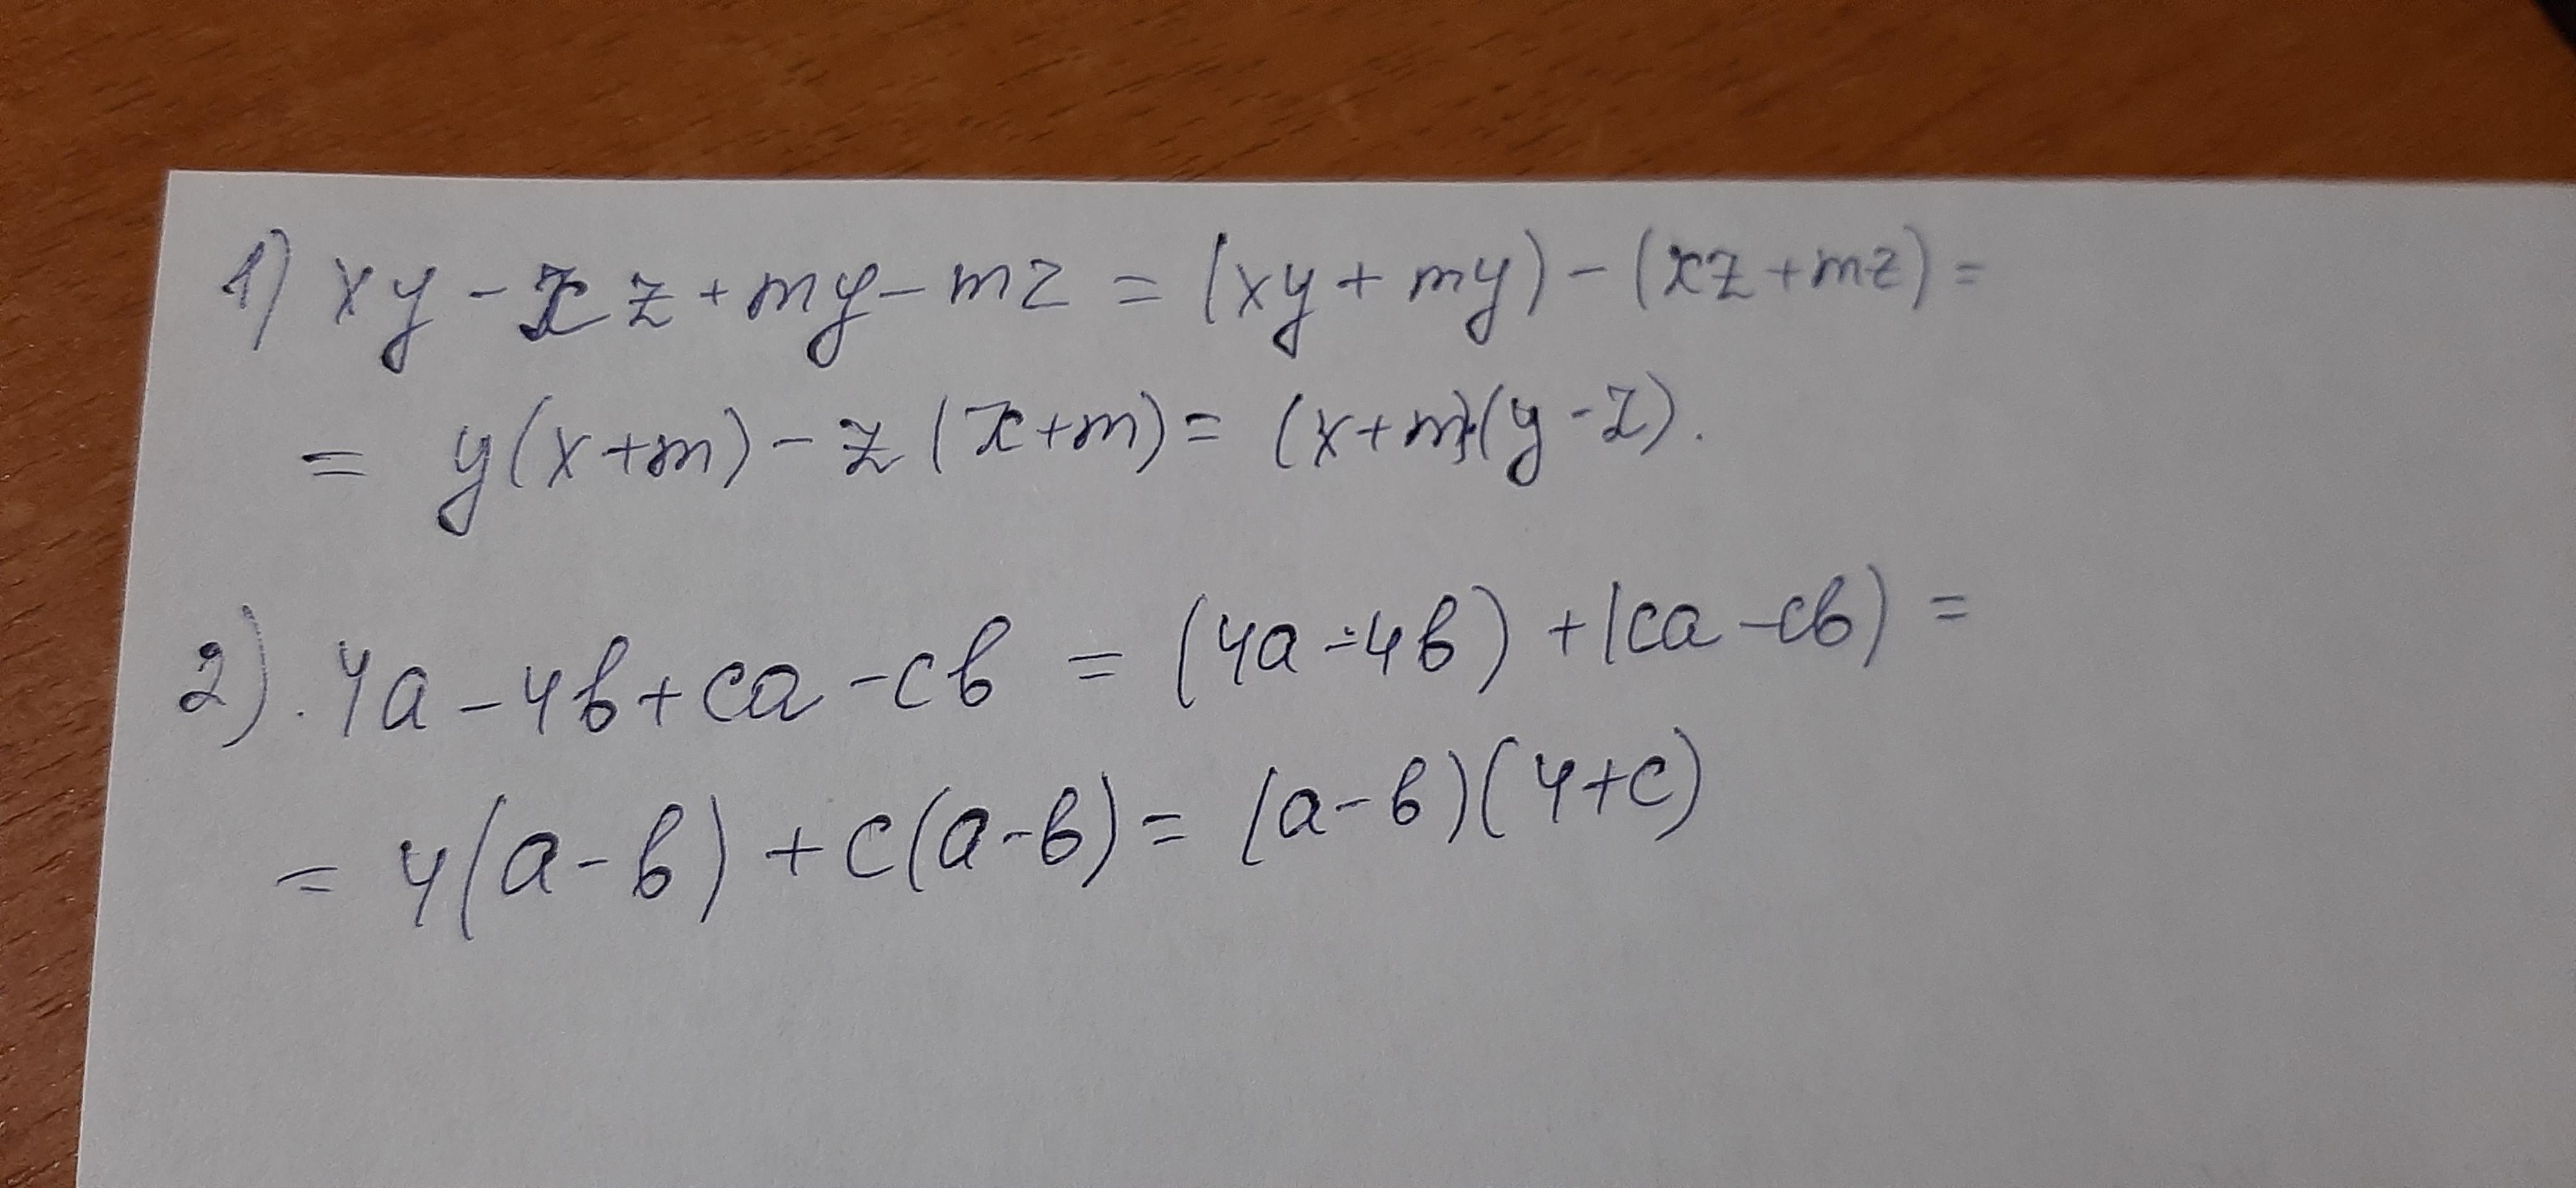 1) xy - xz + my - mz = (xy + my) - (xz + mz) =
= y(x+m) - z(x+m) = (x+m)(y-z).
2). 4a - 4b + ca - cb = (4a - 4b) + (ca - cb) =
= 4(a-b) + c(a-b) = (a-b)(4+c)